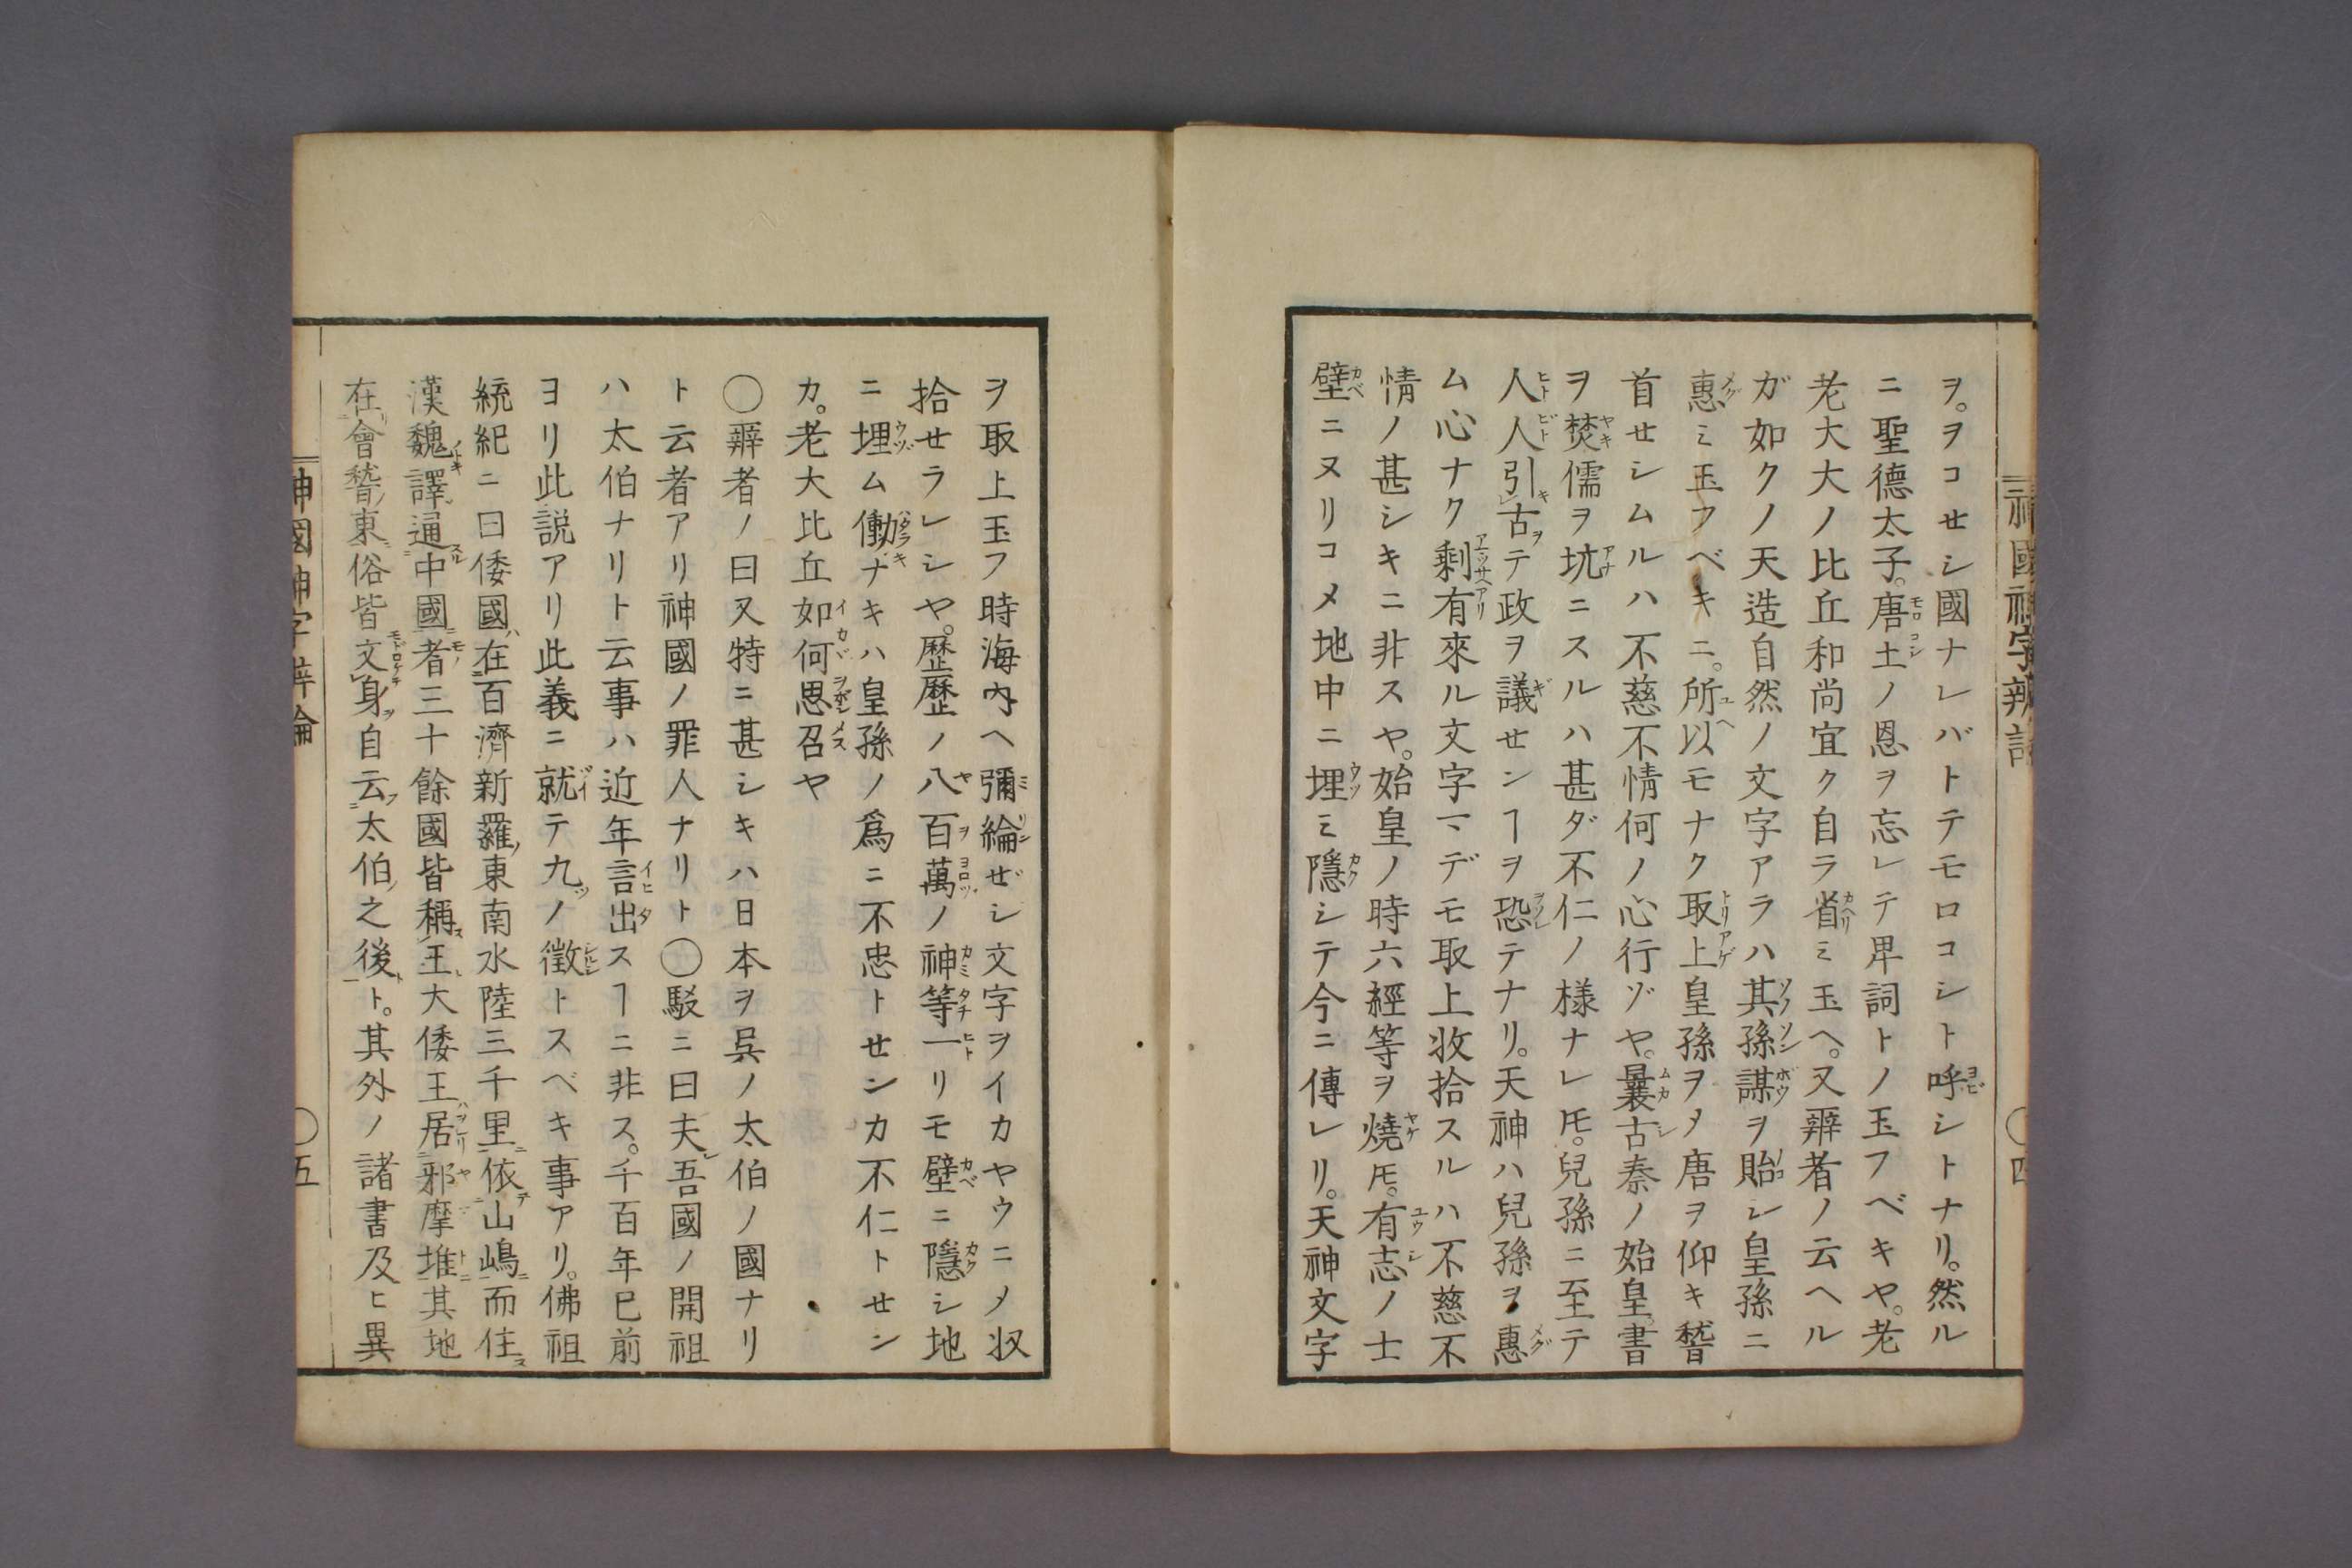 神國神字辨論
四
ヲ。ヲコせシ國ナレバトテモロコシト呼シトナリ。然ル
ニ聖德太子。唐土ノ恩ヲ忘レテ卑詞トノ玉フベキヤ。老
老大大ノ比丘和尚宜ク自ラ省ミ玉ヘ。又辯者ノ云ヘル
ガ如クノ天造自然ノ文字アラハ其孫謀ヲ貽シ皇孫ニ
惠ミ玉フベキニ。所以モナク取上皇孫ヲ〆唐ヲ仰キ稽
首せシムルハ不慈不情何ノ心行ゾヤ。曩古秦ノ始皇。書
ヲ焚儒ヲ坑ニスルハ甚ダ不仁ノ樣ナレ𪜈。兒孫ニ至テ
人人引古テ政ヲ議せンヿヲ恐テナリ。天神ハ兒孫ヲ惠
ム心ナク剩有來ル文字マデモ取上收拾スルハ不慈不
情ノ甚シキニ非スヤ。始皇ノ時六經等ヲ燒𪜈。有志ノ士
壁ニヌリコメ地中ニ埋ミ隱シテ今ニ傳レリ。天神文字
ヲ取上玉フ時海內ヘ彌綸ゼシ文字ヲイカヤウニ〆収
拾せラレシヤ。歷歷ノ八百萬ノ神等一リモ壁ニ隱シ地
ニ埋ム働ナキハ皇孫ノ爲ニ不忠トせンカ不仁トせン
カ。老大比丘如何思召ヤ
〇辯者ノ曰又特ニ甚シキハ日本ヲ呉ノ太伯ノ國ナリ
ト云者アリ神國ノ罪人ナリト〇駁ニ曰夫吾國ノ開祖
ハ太伯ナリト云事ハ近年言出スヿニ非ス。千百年已前
ヨリ此説アリ此義ニ就テ九ノ徵トスベキ事アリ。佛祖
統紀ニ曰倭國在百濟新羅東南水陸三千里依山嶋而住
漢魏譯通中國者三十餘國皆稱王大倭王居邪摩堆其地
在會稽東俗皆文身自云太伯之後ト。其外ノ諸書及ヒ異
神國神字辨論
〇五